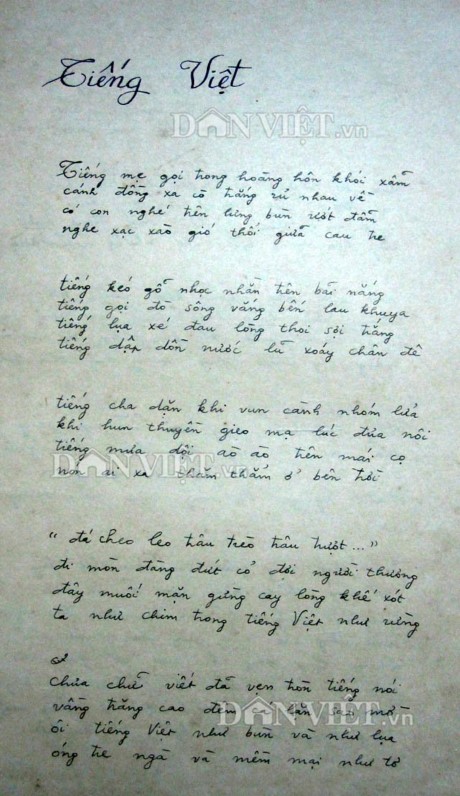 Tiếng Việt
DANVIỆT.vn
Tiếng mẹ gọi trong hoàng hôn khói xẫm
cánh đồng xa cò trắng rủ nhau về
có con nghé trên lưng bùn ướt đẫm
nghe xạc xào gió thổi giữa cau tre
tiếng kéo gỗ nhọc nhằn trên bãi nắng
tiếng gọi đò sông vắng bến lau khuya
tiếng lụa xé đau lòng thoi sợi trắng
tiếng dập dồn nước lũ xoáy chân đê
tiếng cha dặn khi vun cành nhóm lửa
khi hun thuyền gieo mạ lúc đưa nôi
tiếng mưa dội ào ào trên mái cọ
DANVIỆT.vn
nón ai xa thăm thẳm ở bên trời
“đá cheo leo trâu trèo trâu trượt...”
đi mòn đàng đứt cỏ đợi người thương
đây muối mặn gừng cay lòng khế xót
ta như chim trong tiếng Việt như rừng
chưa chữ viết đã vẹn tròn tiếng nói
vầng trăng cao đêm lặn
DANVIỆT.vn
ôi tiếng Việt như bùn và như lụa
óng tre ngà và mềm mại như tơ